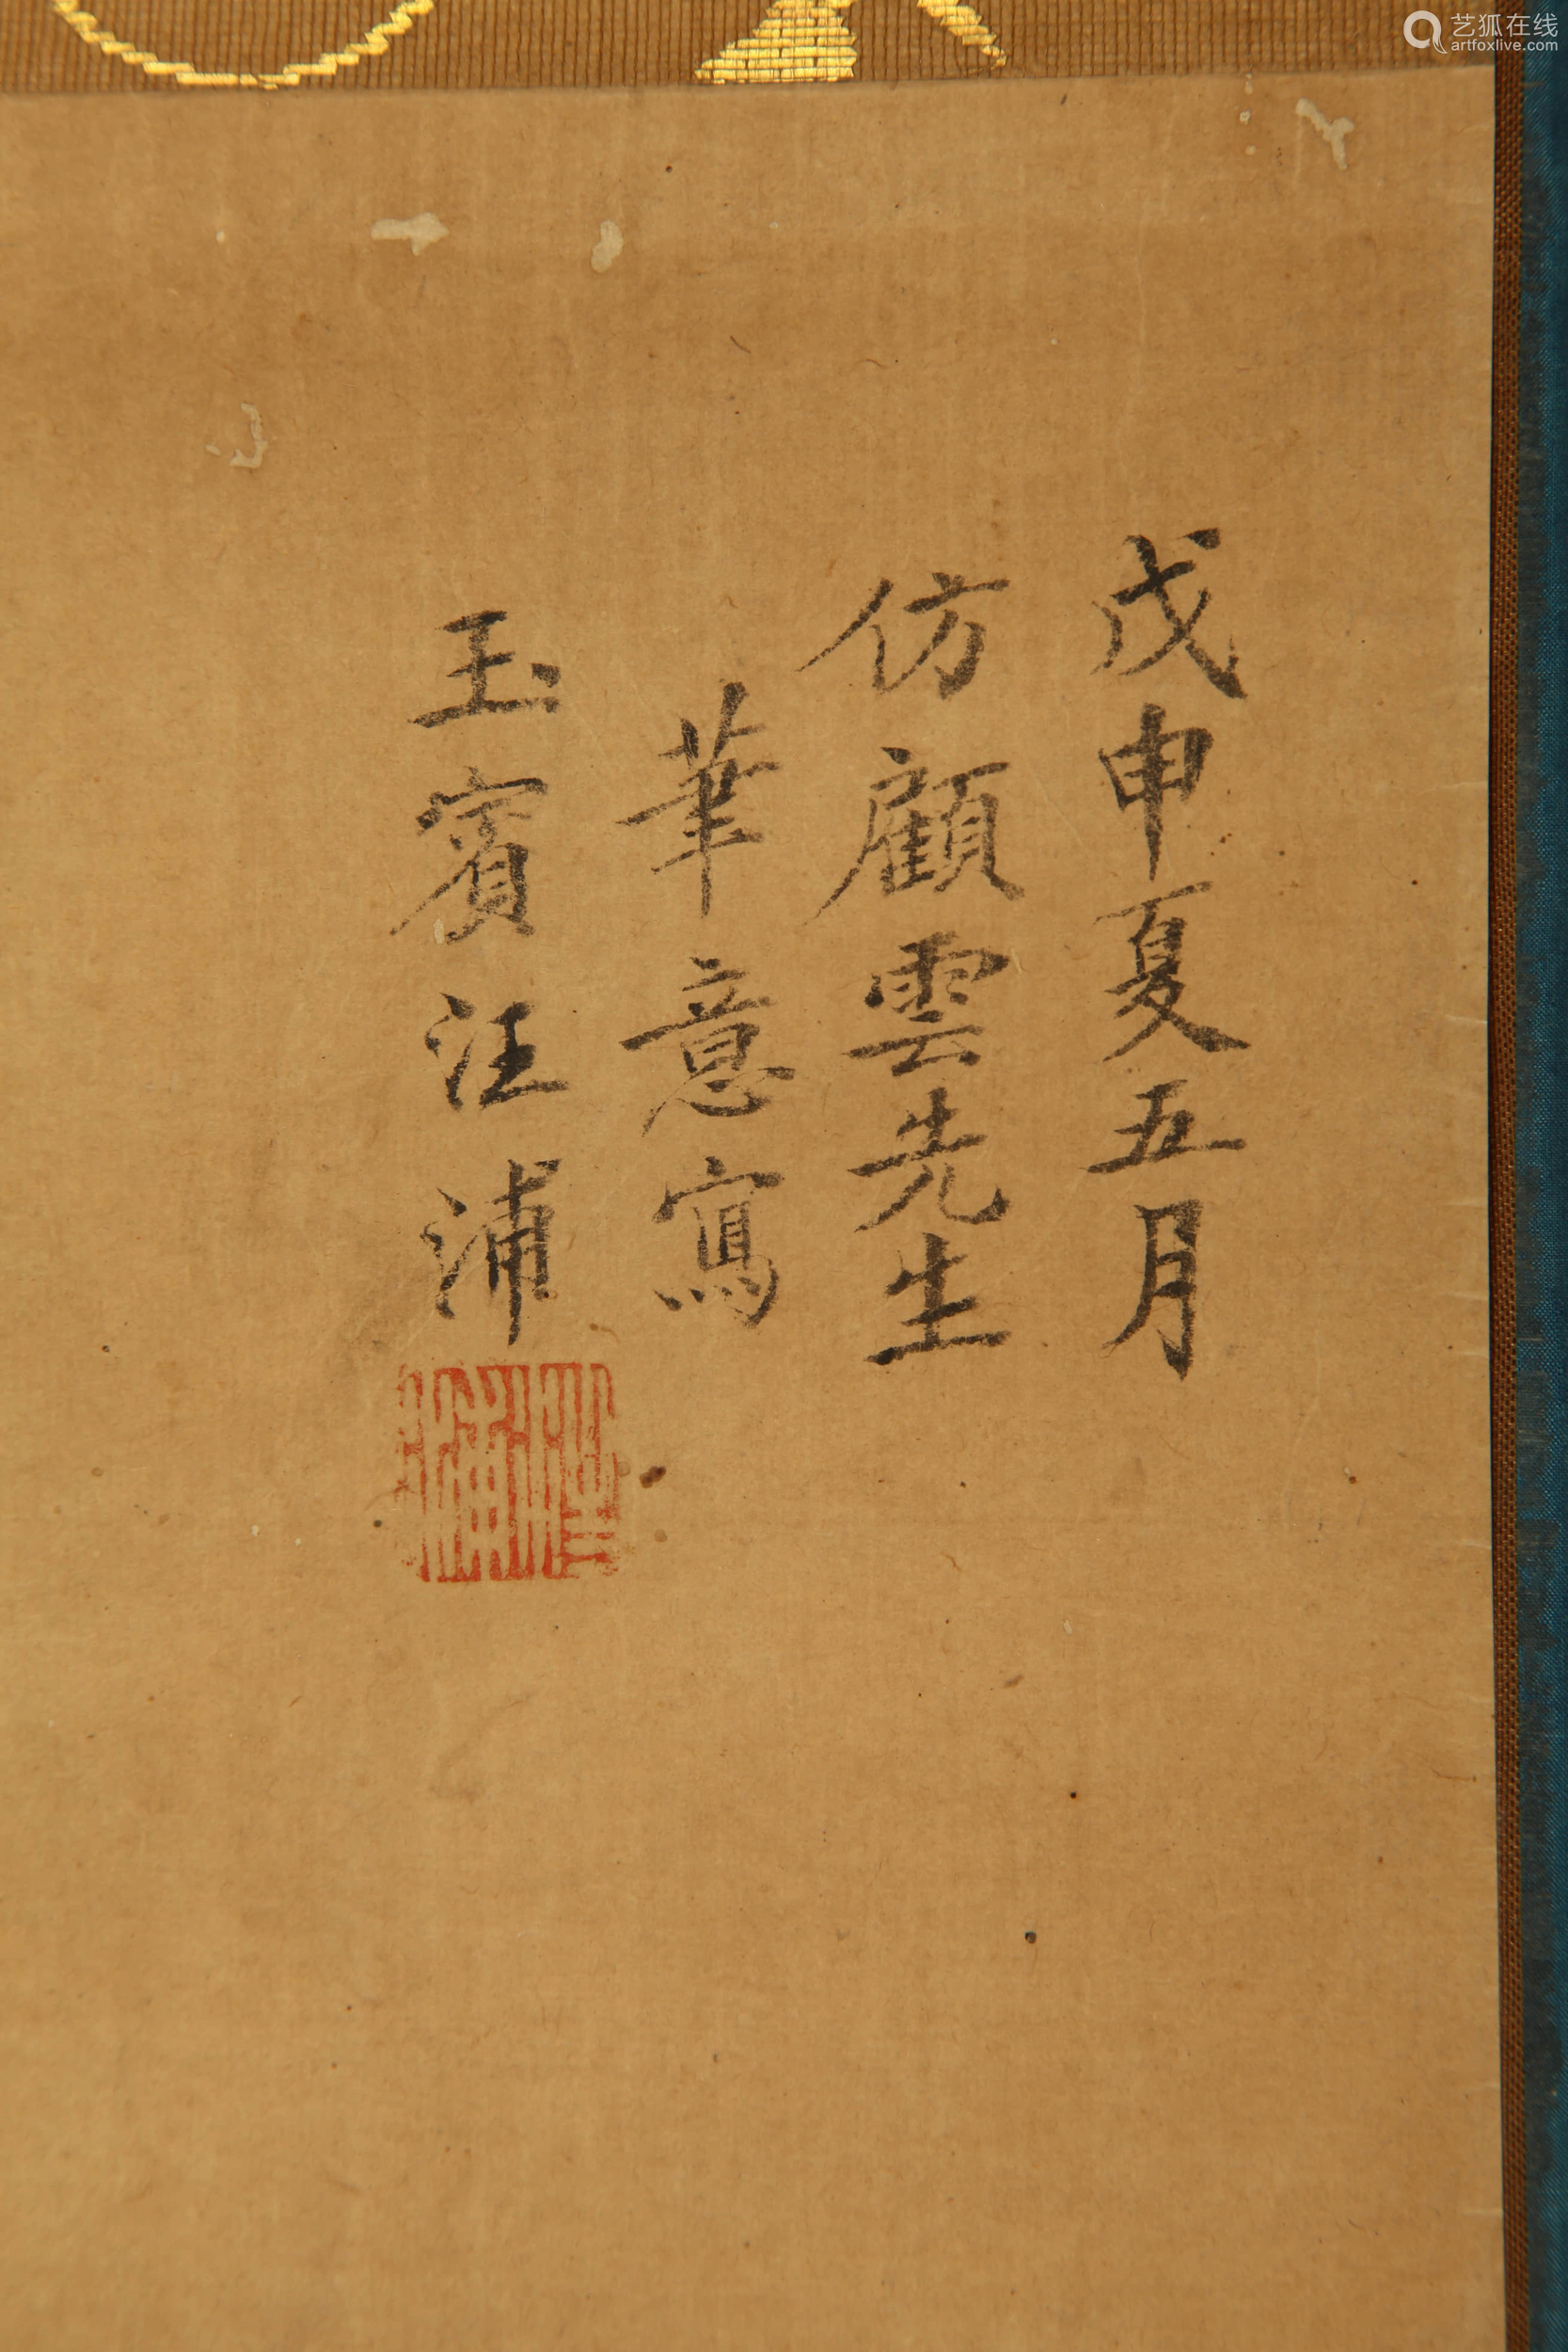 戊申夏五月
仿顧雲先生
筆意寫
玉賓汪浦
艺狐在线
artfoxlive.com